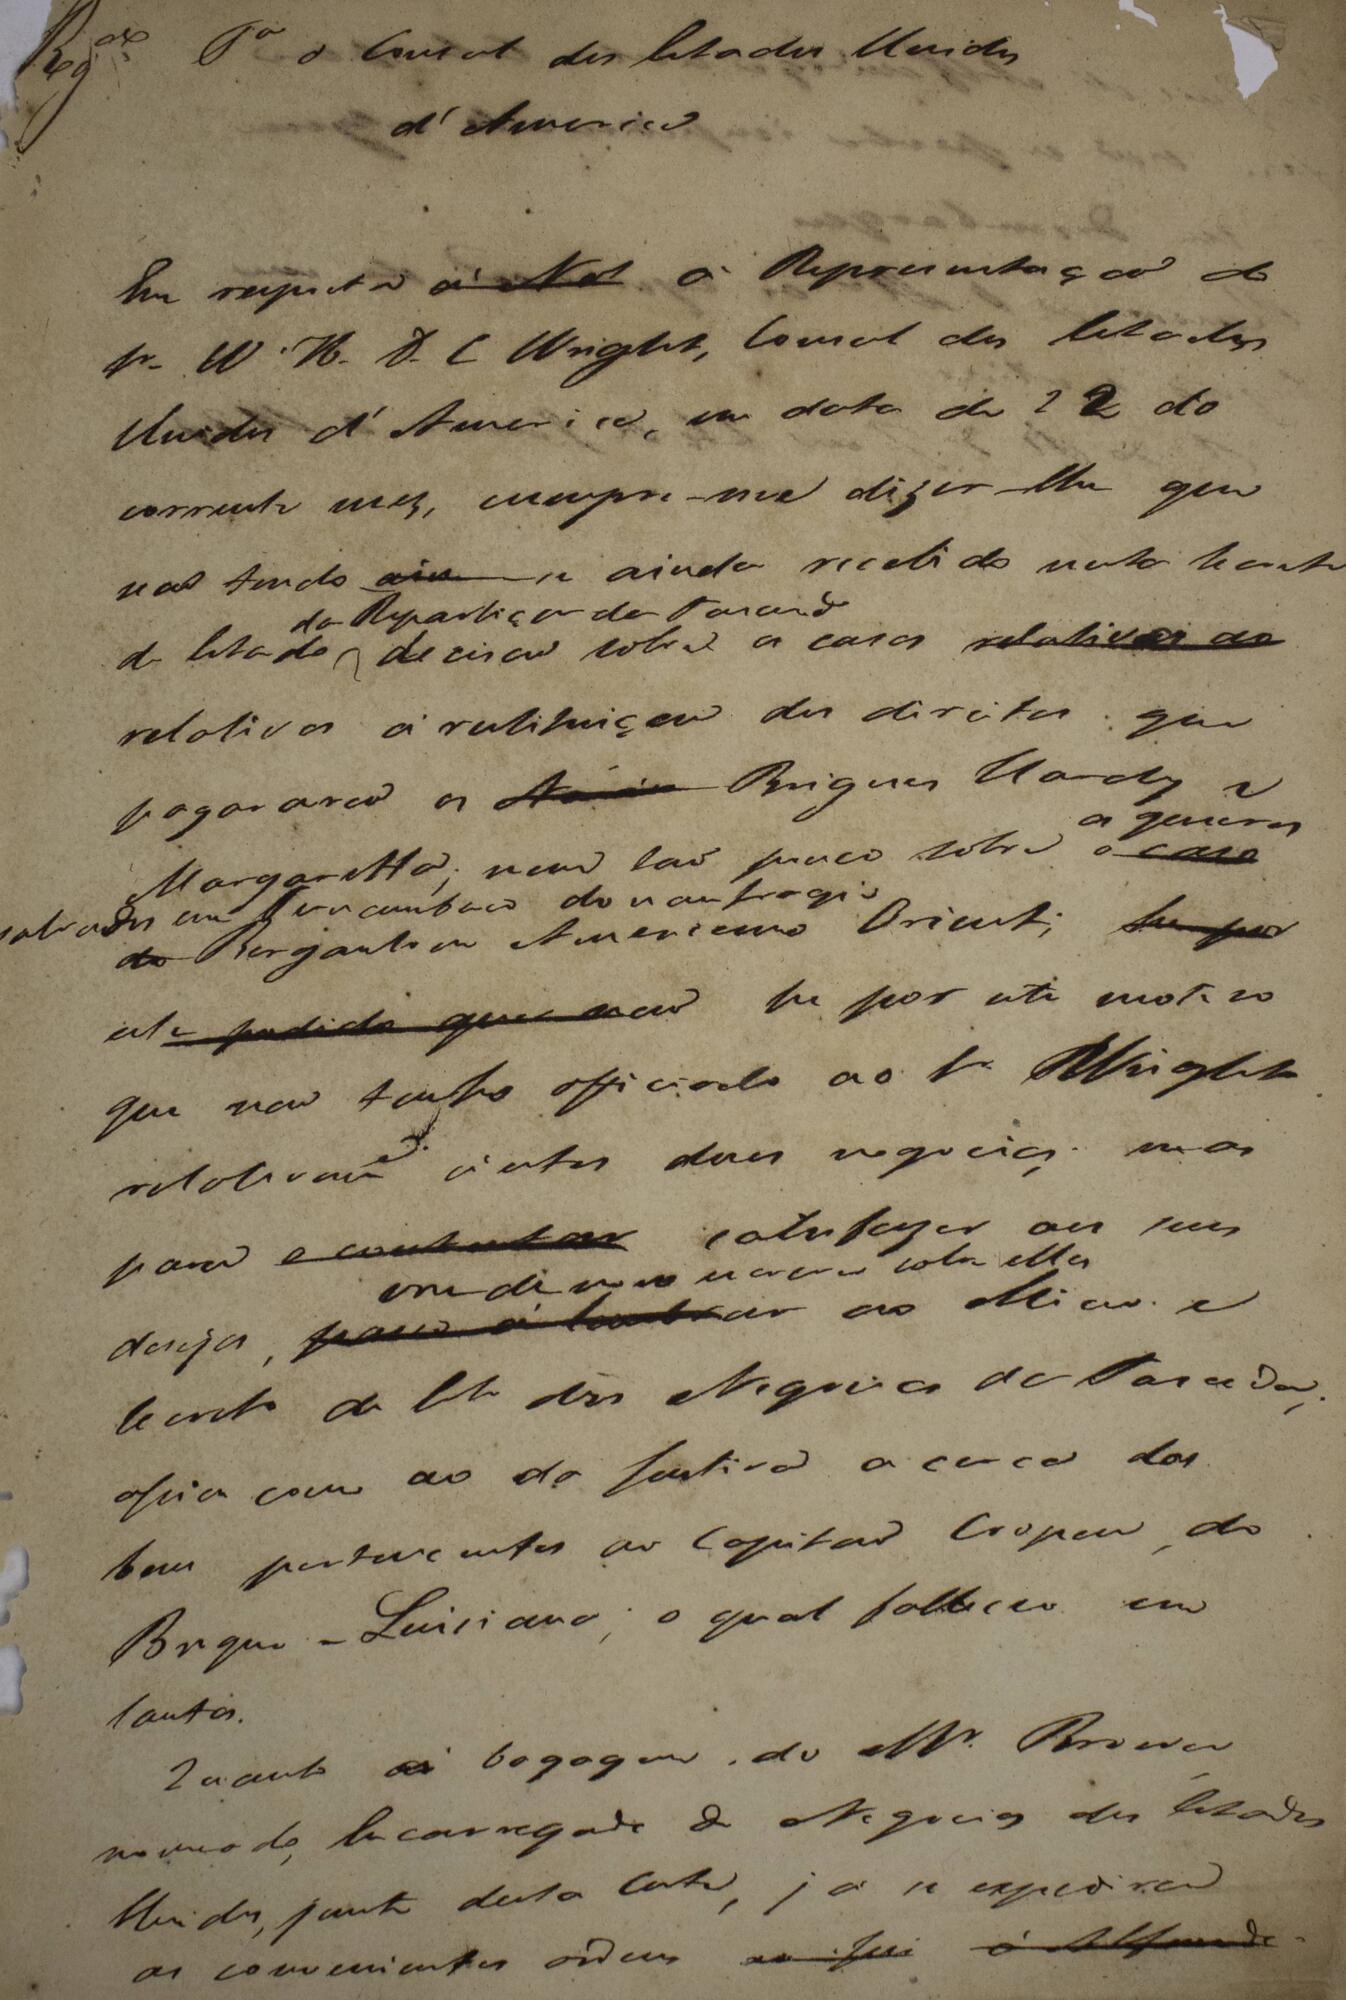 Reg.do Pa o Consul dos Estados Unidos
d'America
Em resposta á Not á Representação do
Sr. W. H. D. C Wright, Consul dos Estados
Unidos d'America, em data de 22 do
corrente mez, cumpre-me dizer-lhe que
não tendo ain se ainda recebido nesta Secreta
da Repartição da Fazenda
de Estado decisão sobre o casos relativos ao
relativos á restituição dos direitos que
pagararão os Brigues Hardy e
os generos
Margaretta, nem tão pouco sobre o caso
salvados em Pernambuco do naufragio
do Bergantim Americano Orient; he por
este pedido que nao he por este motivo
que nao tenho officiado ao Sr Wright
relativame á estes dous negocios. mas
para o contentar satisfazer aos seus
vou de novo escrever sobre elles
desejos, passo á lembrar ao Mino. e
Secreto de Esto dos Negocios da Fazenda,
assim como ao da Justiça a cerca dos
bens pertencentes ao Capitão Cropen, do
Brigue - Luisiana, o qual falleceo em
Santos.
Quanto á bagagem do Mr. Brown
nomeado Encarregado de Negocios dos Estados
Unidos, junto desta Corte, já se expedirão
as convenientes ordens á Alfande-